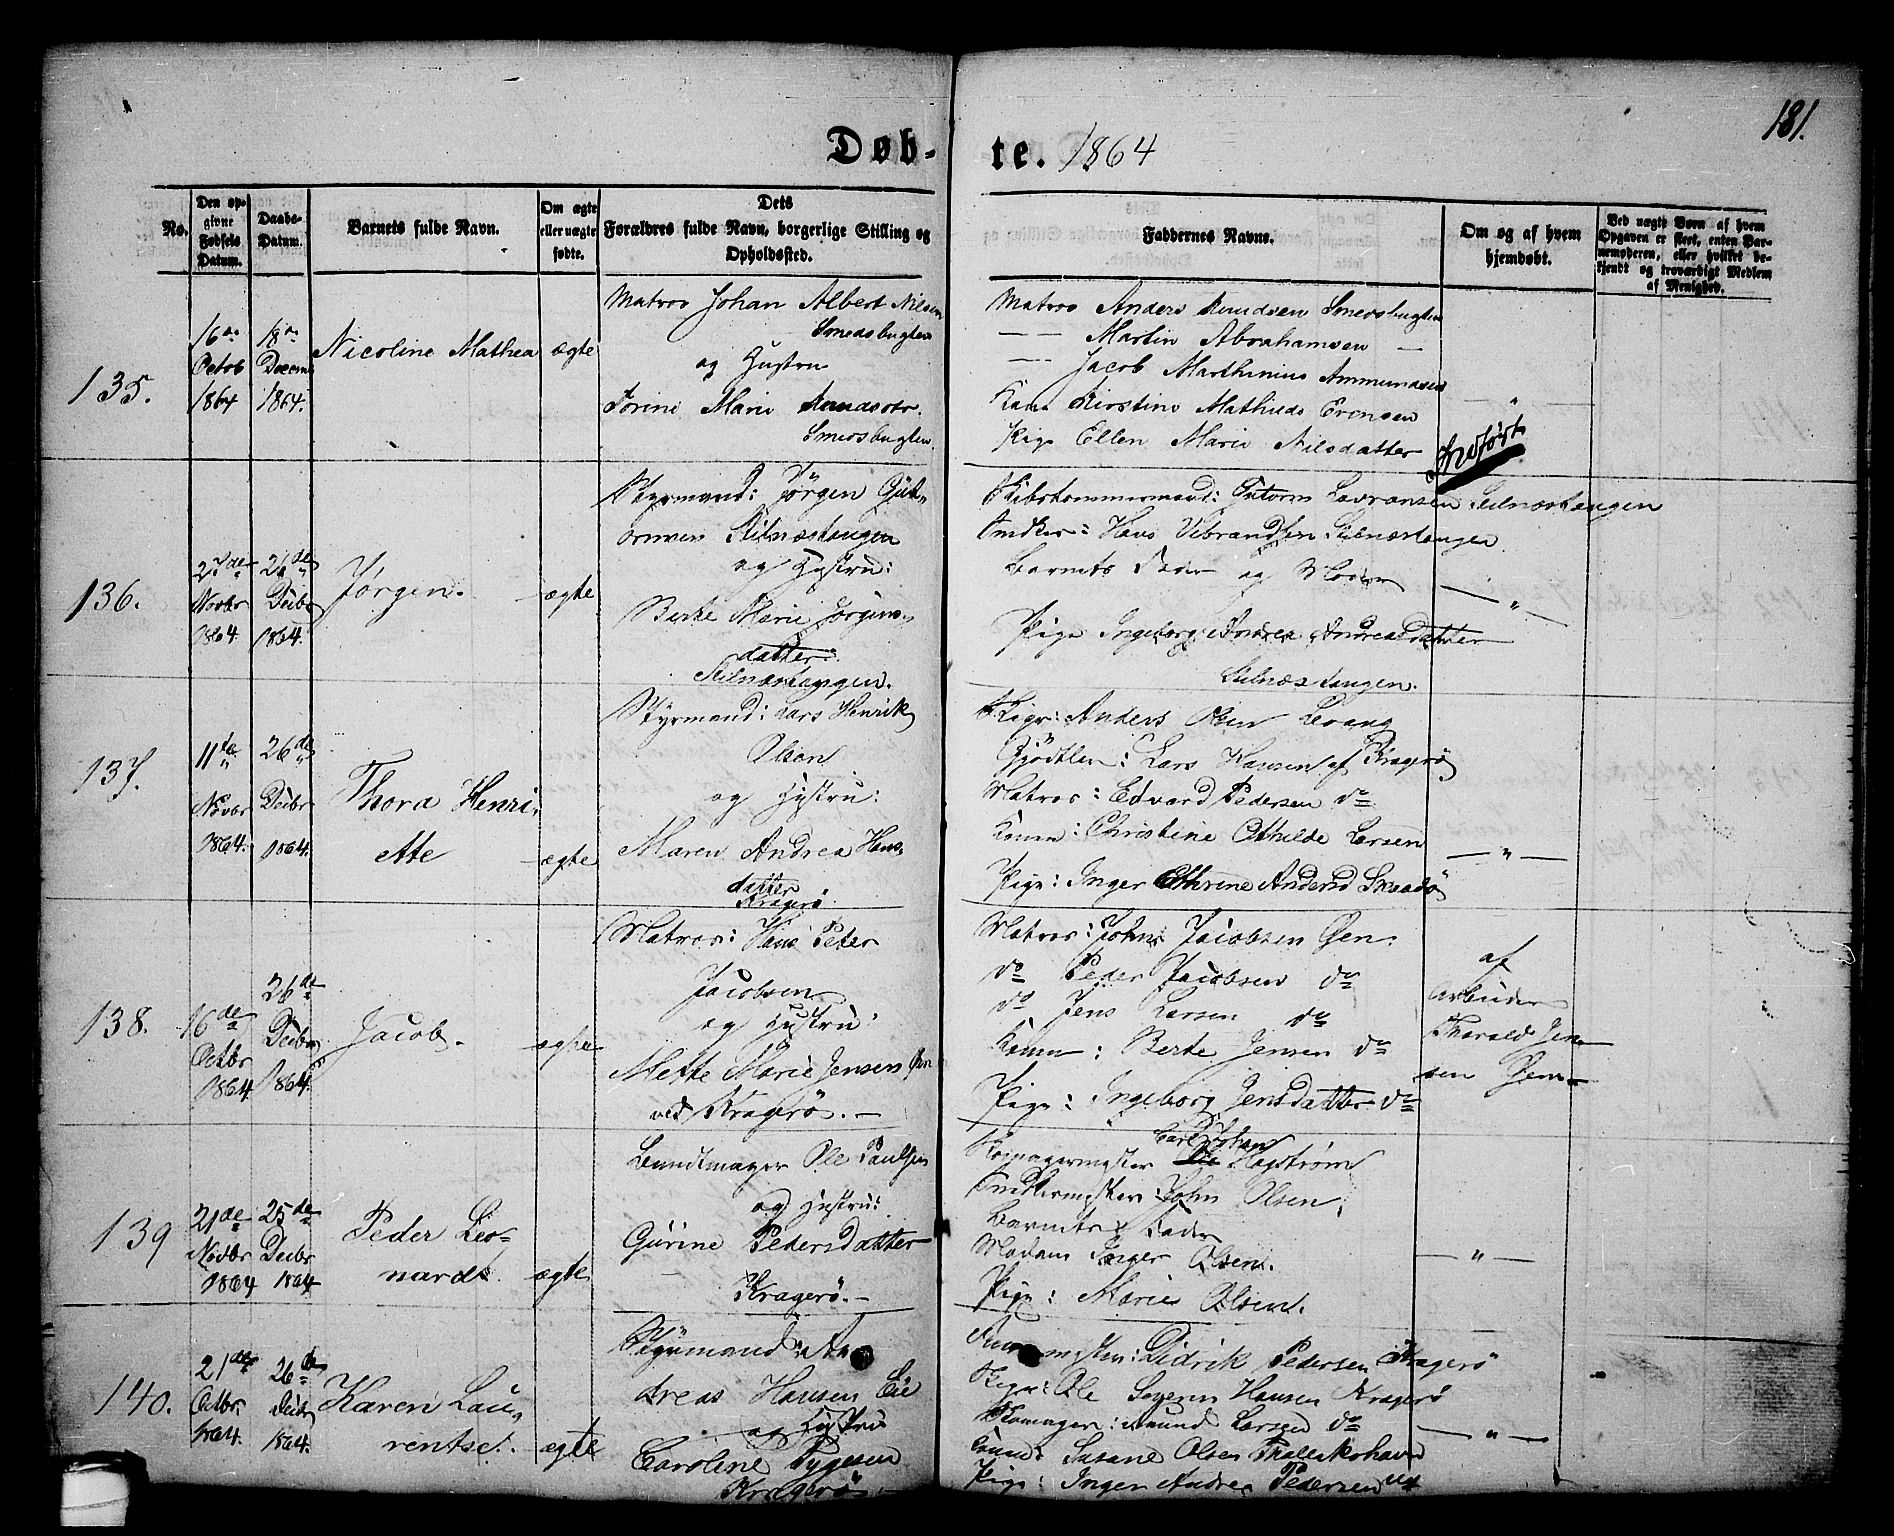 181.
Døb-te. 1864
No.
Den op-
givne
Fødsels
Datum.
Daabs-
Datum.
Barnets fulde Navn.
Om ægte
eller uægte
fødte.
Dets
Forældres fulde Navn, borgerlige Stilling og
Opholdssted.
Faddernes Navne.
Om og af hvem
hjemdøbt.
Ved uægte Børn af hvem
Opgaven er skeet, enten Bar-
nemoderen, eller hvilket be-
kjendt og troværdigt Medlem
af Menighed.
135.
16de
Octob
1864
18de
Decem
1864.
Nicoline Mathea
ægte
Matros Johan Albert Nilsen
Smedsbugten
og Hustru
Torine Marie
Smedsbugten.
Matros Anders Knudsen Smedsbugten
— — Martin Abrahamsen —
— Jacob Marthinius Ammundsen
Kone Kirstine Mathilde Evensen
Pige Ellen Marie Nilsdatter
— " —
136.
27de
Novbr
1864.
26de
Decbr
1864.
Jørgen.
ægte
Styrmand: Jørgen Gut-
ormsen Stilnæstangen
og Hustru:
Berte Marie Jørgens-
datter:
Stilnæstangen.
Skibstømmermand: Gutorm Lavransen Stilnæstangen
Snedker: Hans Vibrandsen Stilnæstangen
Barnets Fader og Moder
Pige Ingeborg Andrea Andreasdatter
Stilnæstangen.
— " —
137.
11te
Novbr
1864.
26de
Decbr
1864.
Thora Henri-
ette
ægte
Styrmand: Lars Henrik
Olsen
og Hustru:
Maren Andrea Hans-
datter
Kragerø.
Anders Olsen Levang
Lars Hansen af Kragerø
Matros: Edvard Pedersen do
Kone: Christine Othilde Larsen
Pige: Inger Cathrine Andersd Skaadø
— " —
138.
16de
Octbr
1864
26de
Decbr
1864.
Jacob.
ægte
Matros: Hans Peter
Jacobsen
og Hustru:
Mette Marie Jensen Øen
ved Kragerø. —
Matros: John Jacobsen Øen.
do Peder Jacobsen do
do Jens Larsen do
Kone: Berte Jensen do
Pige: Ingeborg Jensdatter do
af
Arbeider
Tharald Jen-
sen Øen
139
21de
Novbr
1864
25de
Decbr
1864
Peder Leo-
nardt.
ægte
Bundtmager Ole Paulsen
og Hustru:
Gurine Pedersdatter
Kragerø. —
Carl Johan
Hagstrøm
Snedkermester: John Olsen.
Barnets Fader
Madam Inger Olsen.
Pige: Marie Olsen.
— " —
140.
21de
Octbr.
1864.
26de
Decbr
1864.
Karen Lau-
rentse.
ægte
Styrmand: An-
dreas Hansen Eie
og Hustru
Caroline Tygesen
Kragerø —
Didrik Pedersen Kragerø
Ole Severin Hansen Kragerø
Skomager: Amund Larsen do
Kone: Susane Olsen
Pige: Inger Andrea Pedersen
— " —